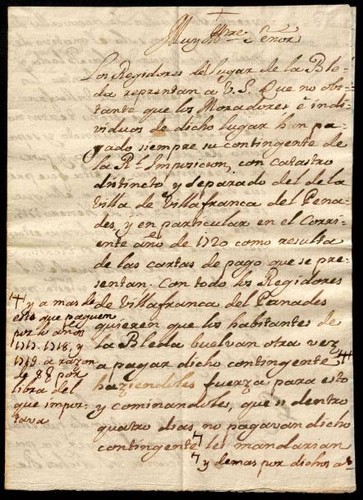 Muy Ill.re Señor
Los Regidores del lugar de la Bleda representan a V.S. Que no obstante que los Moradores e individuos de dicho lugar han pagado siempre su contingente de la Rl Imposicion, con catastro distincto, y separado del de la Villa de Villafranca del Penades, y en particular en el Corriente año de 1720 como resulta de las cartas de pago que se presentan. Con todo los Regidores de Villafranca del Panades quieren que los habitantes de la Bleda buelvan otra vez a pagar dicho contingente haziendoles fuerza para esto y cominandoles, que si dentro quatro dias, no pagavan dicho contingente les mandarian
y demas por dichos a
y a mas de esto que paguen por los años 1717. 1718, y 1719. a razon de 8 por libra del que importava